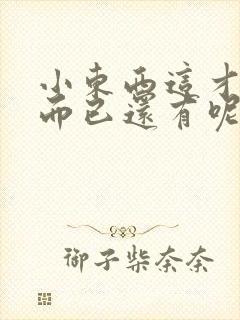 小東西這才
而已還有呢
御子柴奈奈